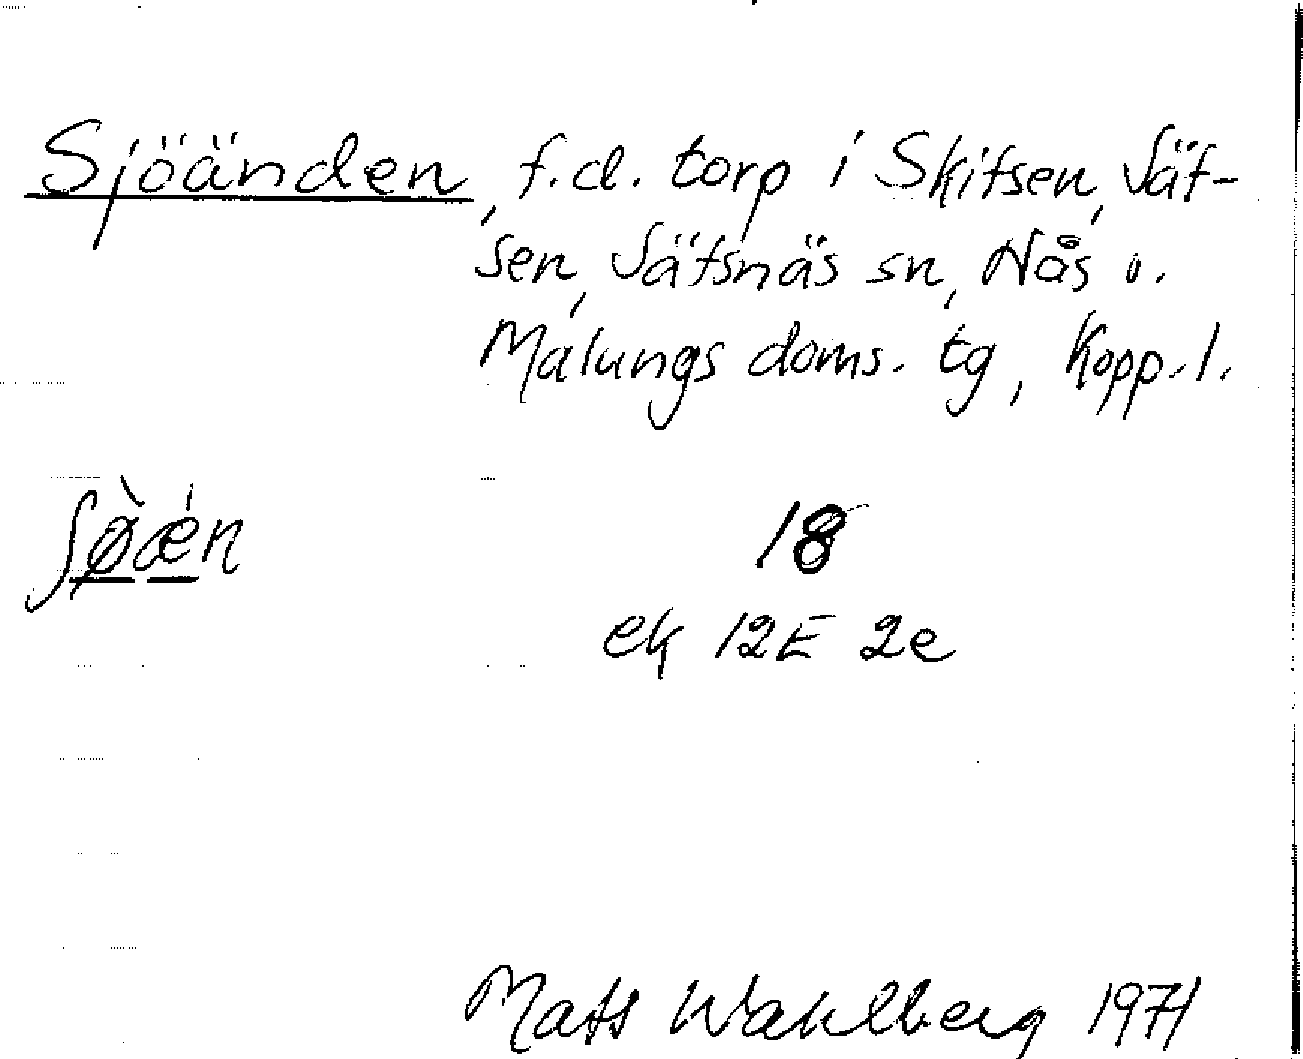 Sjöänden, f.d. torp i Skifsen, Säf-
sen, Säfsnäs sn, Nås o.
Malungs doms. tg, Kopp. l.
ʃø̀æ´n
18
ek 12E 2e
Mats Wahlberg 1971